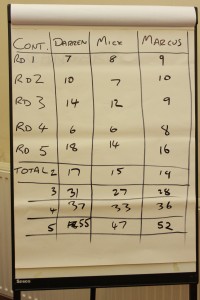 CONT. DARREN MICK MARCUS
RD 1 7 8 9
RD 2 10 7 10
RD 3 14 12 9
RD 4 6 6 8
RD 5 18 14 16
TOTAL 2 17 15 19
3 31 27 28
4 37 33 36
5 55 47 52